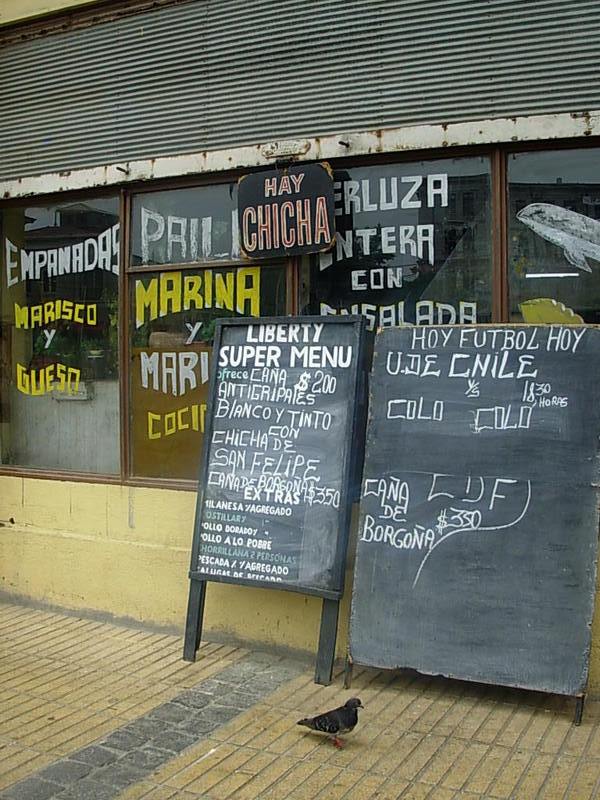 HAY
CHICHA
EMPANADAS
MARISCO
Y
QUESO
PAIL
MARINA
Y
MARI
COCI
ERLUZA
NTERA
CON
ENSALADA
LIBERTY
SUPER MENU
ofrece CAÑA $200
ANTIGRIPALES
BLANCO Y TINTO
CON
CHICHA DE
SAN FELIPE
CAÑA DE BORGOÑA $350
EXTRAS
MILANESA Y AGREGADO
COSTILLAR Y "
POLLO DORADO Y "
POLLO A LO POBRE
CHORRILLANA 2 PERSONAS
PESCADA X Y AGREGADO
HOY FUTBOL HOY
U.DE CHILE
VS 18,30
HORAS
COLO COLO
CDF
CAÑA
DE $350
BORGOÑA